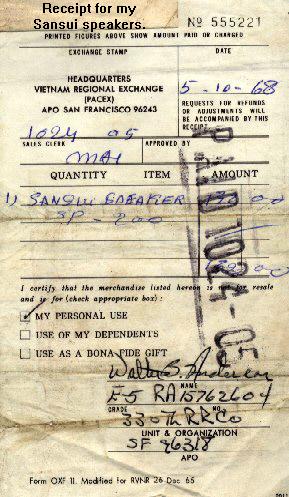 Receipt for my
Sansui speakers.
Nº 555221
PRINTED FIGURES ABOVE SHOW AMOUNT PAID OR CHARGED
EXCHANGE STAMP
DATE
HEADQUARTERS
VIETNAM REGIONAL EXCHANGE
(PACEX)
APO SAN FRANCISCO 96243
5-10-68
REQUESTS FOR REFUNDS
OR ADJUSTMENTS WILL
BE ACCOMPANIED BY THIS
RECEIPT
1024 05
SALES CLERK
APPROVED BY
MAI
QUANTITY ITEM AMOUNT
1) SANSUI SPEAKER
SP - 200
PAID 1024-05
I certify that the merchandise listed hereon is not for resale
and is for (check appropriate box) :
MY PERSONAL USE
USE OF MY DEPENDENTS
USE AS A BONA FIDE GIFT
Walter S. Anderson
NAME
E-5 RA15762604
GRADE
330th RRCo
UNIT & ORGANIZATION
SF 96318
APO
Form OXF 11. Modified for RVNR 26 Dec 65